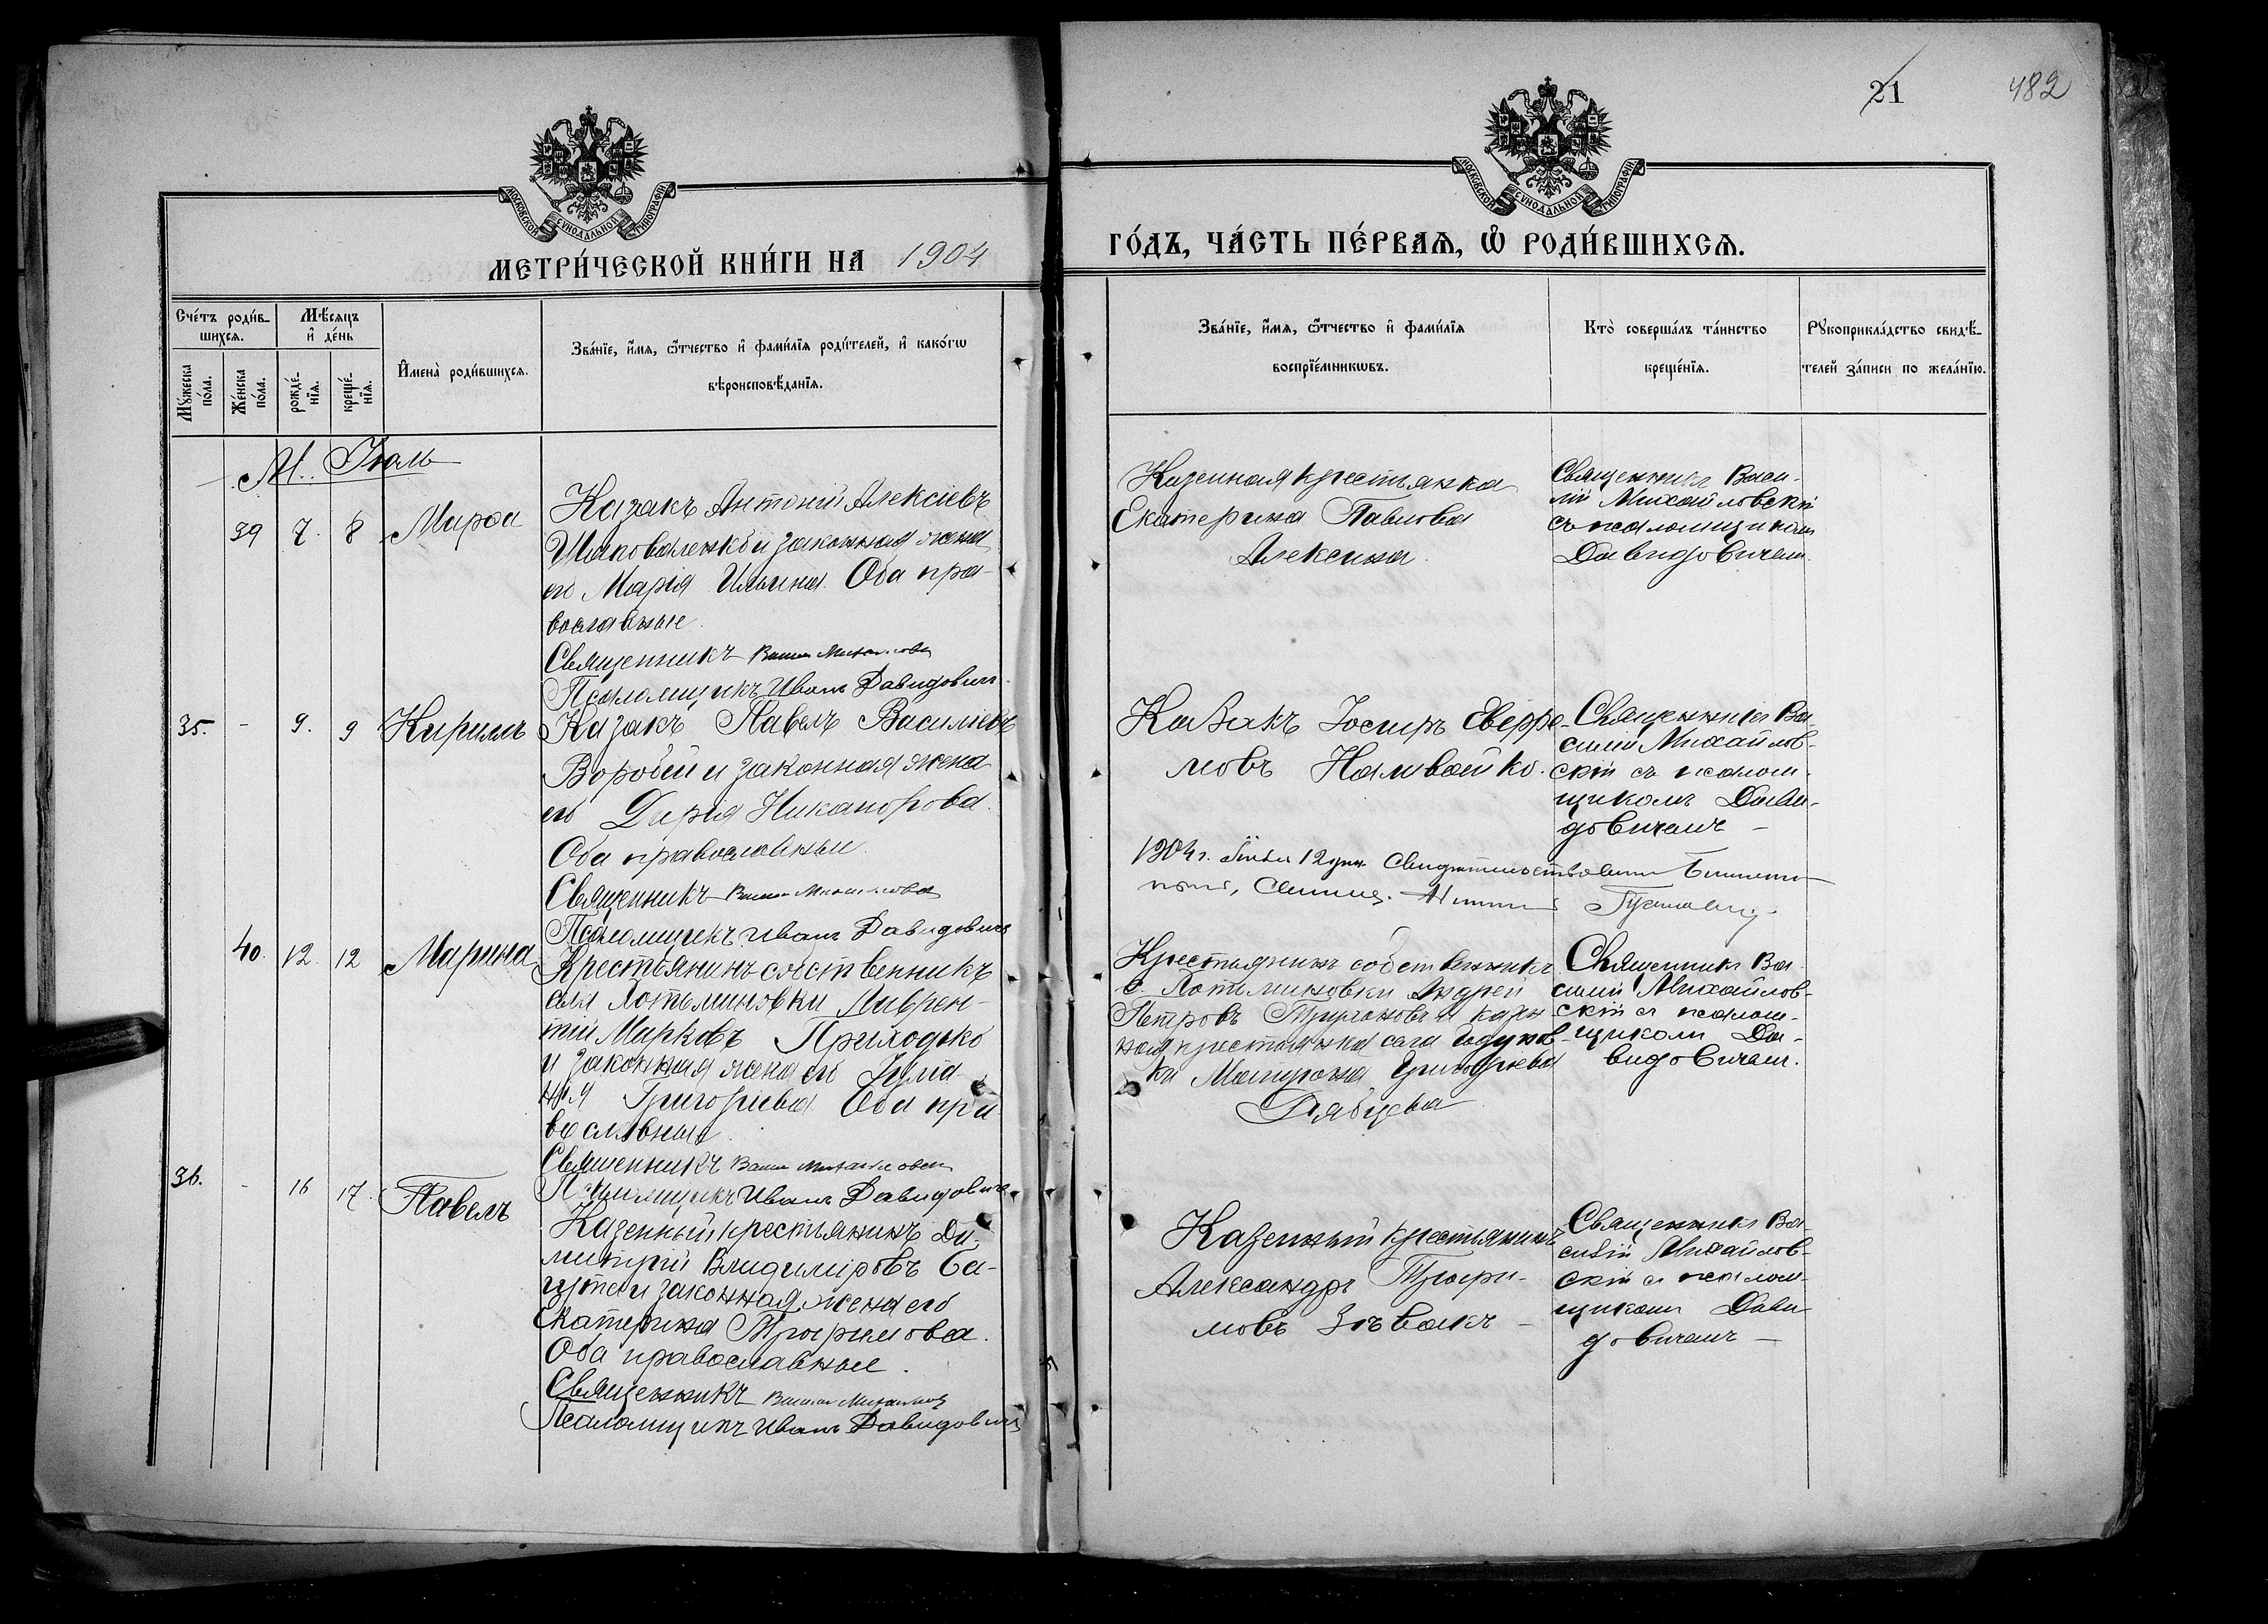 21
482
МОСКОВСКОЙ СѴНОДАЛЬНОЙ ТИПОГРАФІИ
МОСКОВСКОЙ СѴНОДАЛЬНОЙ ТИПОГРАФІИ
МЕТРИ́ЧЕСКОЙ КНИ́ГИ НА 1904
ГО́ДЪ, ЧА́СТЬ ПЕ́РВАѦ, Ѽ РОДИ́ВШИХСѦ.
Сче́тъ роди́в-
шихсѧ.
Мꙋ́жеска
по́ла.
Же́нска
по́ла.
Мѣ́сѧцъ
и҆ де́нь
рожде́-
нїѧ.
креще́-
нїѧ.
И҆мена̀ роди́вшихсѧ.
Зва́нїе, и҆́мѧ, ѻ҆́тчество и҆ фами́лїѧ роди́телей, и҆ како́гѡ
вѣроисповѣ́данїѧ.
Зва́нїе, и҆́мѧ, ѻ҆́тчество и҆ фами́лїѧ
воспрїе́мникѡвъ.
Кто̀ соверша́лъ та́инство
креще́нїѧ.
Рꙋкоприкла́дство свидѣ́-
телей за́писи по жела́нїю.
М. Іюль
39 7. 8 Марѳа
Казакъ Антоній Алексіевъ
Шаповаленко и законная жена
его Марія Ильина. Оба пра-
вославные.
Священникъ
Псаломщикъ Иванъ Давидовичъ
Казенная крестьянка
Екатерина Павлова
Алексина.
Священникъ Васи-
лій Михайловскій
съ псаломщикомъ
Давидовичем.
35. - 9. 9 Кирилъ
Казакъ Павелъ Васильевъ
Воробей и законная жена
его Дарія Никанорова.
Оба православные.
Священникъ
Псаломщикъ Иванъ Давидовичъ
Казакъ Іосифъ Евфре-
мовъ Наливайко.
Священникъ Ва-
силій Михайлов-
скій съ псалом-
щикомъ Дави-
довичемъ -
1904 г. 12 дня
40. 12. 12 Марина
Крестьянинъ собственникъ
села Хотьминовки Лаврен-
тій Марковъ Приходько
и законная жена его Іулiа-
нія Григорьева. Оба пра
вославные.
Священникъ
Псаломщикъ Иванъ Давидовичъ
Крестьянинъ собственникъ
с. Хотьминовки Андрей
Петровъ и казен
ная крестьянка села
ка Григорьева
Рябцева
Священникъ Ва-
силій Михайлов-
скій съ псалом-
щикомъ Да-
видовичем.
36. - 16 17. Павелъ
Казенный крестьянинъ Ди-
митрій Владиміровъ Ба-
и законная жена его
Екатерина Трофимова.
Оба православные.
Священникъ
Псаломщикъ Иванъ Давидовичъ
Казенный крестьянинъ
Александръ Трофи-
мовъ -
Священникъ Ва-
силій Михайлов-
скій съ псалом-
щикомъ Дави-
довичемъ -